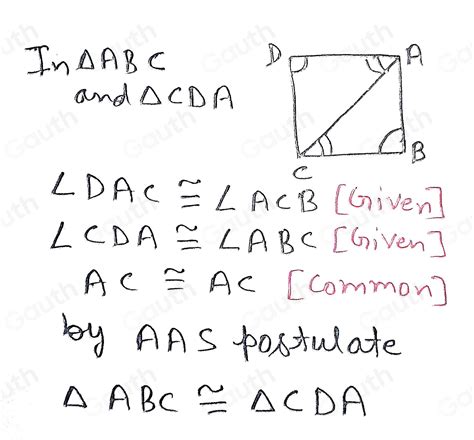 In △ABC
and △CDA
D A
C B
∠DAC ≅ ∠ACB [Given]
∠CDA ≅ ∠ABC [Given]
AC ≅ AC [Common]
by AAS postulate
△ ABC ≅ △CDA
Gauth